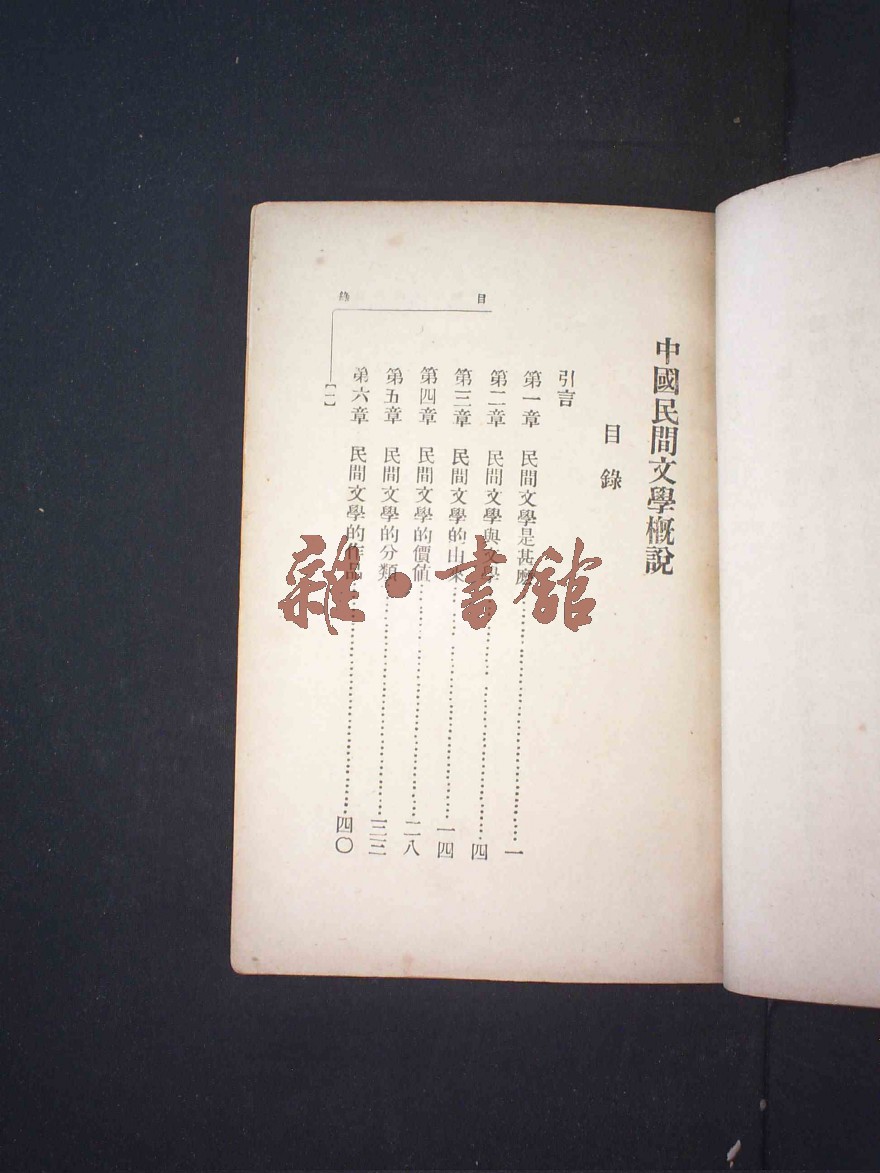 中國民間文學概說
目錄
引言
第一章 民間文學是甚麼……………一
第二章 民間文學與文學……………四
第三章 民間文學的由來……………一四
第四章 民間文學的價值……………二八
第五章 民間文學的分類……………三三
第六章 民間文學的作品……………四〇
目 錄
【一】
雜·書館